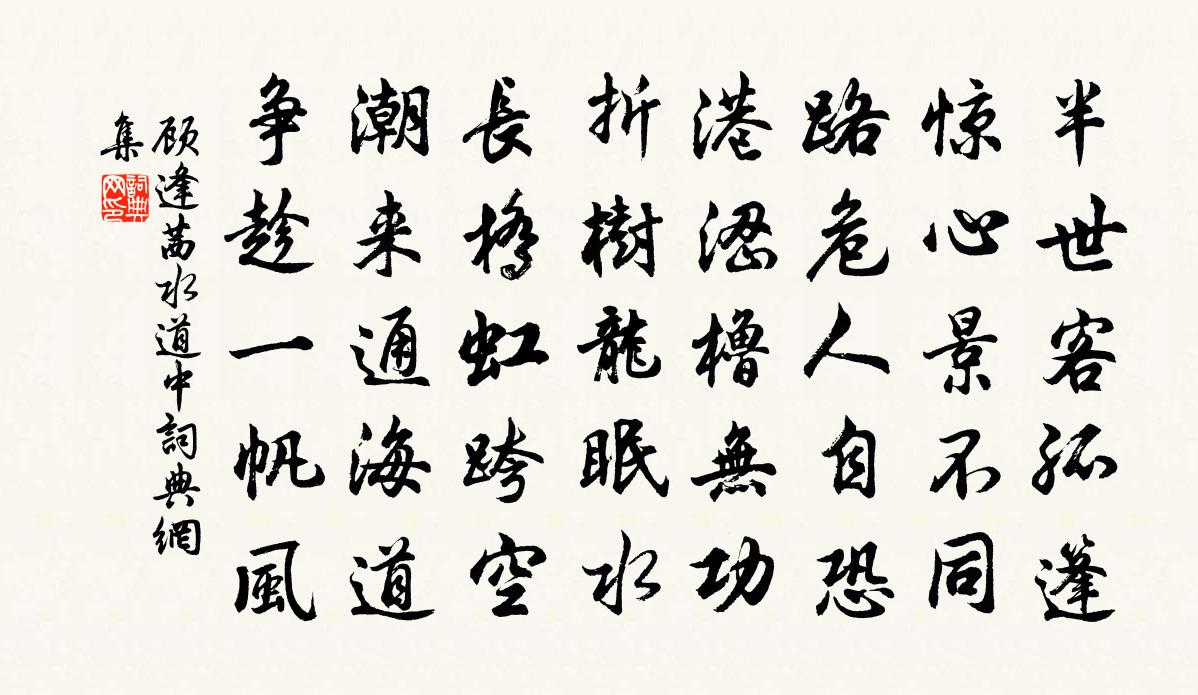 半世客孤篷
惊心景不同
路危人自恐
港涩櫓無功
折樹龍眠水
長橋虹跨空
潮来通海道
争趁一帆風
顾逢茜水道中詞典網
集
詞典
网印